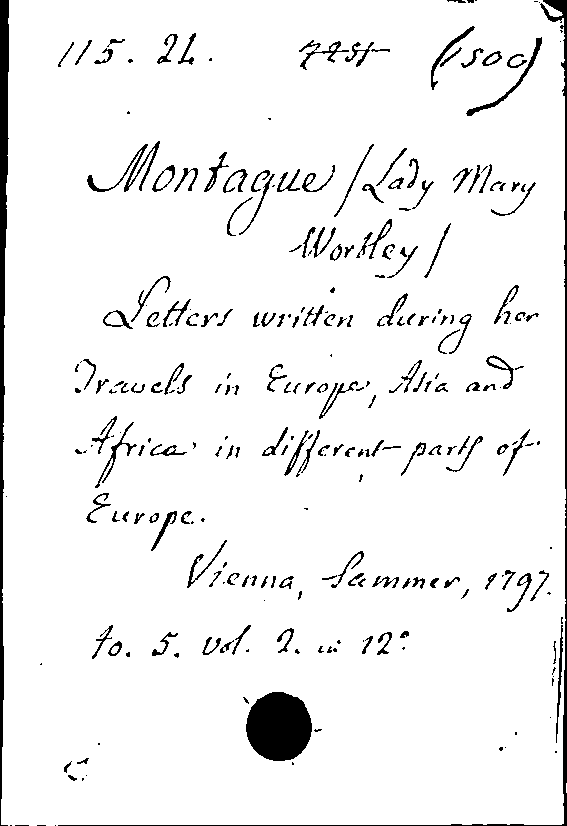 115. 24. (1500)
Montague /Lady Mary
Wortley/
Letters written during her
Travels in Europe, Asia and
Africa in different parts of
Europe.
Vienna, Sammer, 1797.
to. 5. vol. 2. in 12°